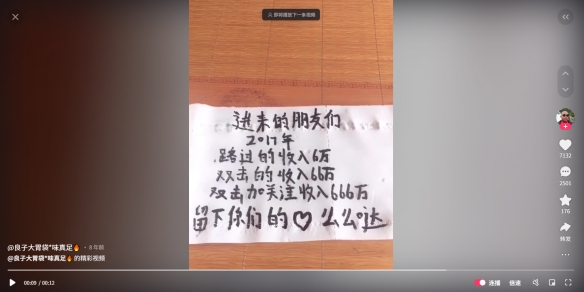 即将播放下一条视频
进来的朋友们
2017年
路过的收入6万
双击的收入66万
双击加关注收入666万
留下你们的♡么么哒
7132
2501
176
转发
@良子大胃袋"味真足🔥 · 8年前
@良子大胃袋"味真足🔥 的精彩视频
00:09 / 00:12
连播
倍速